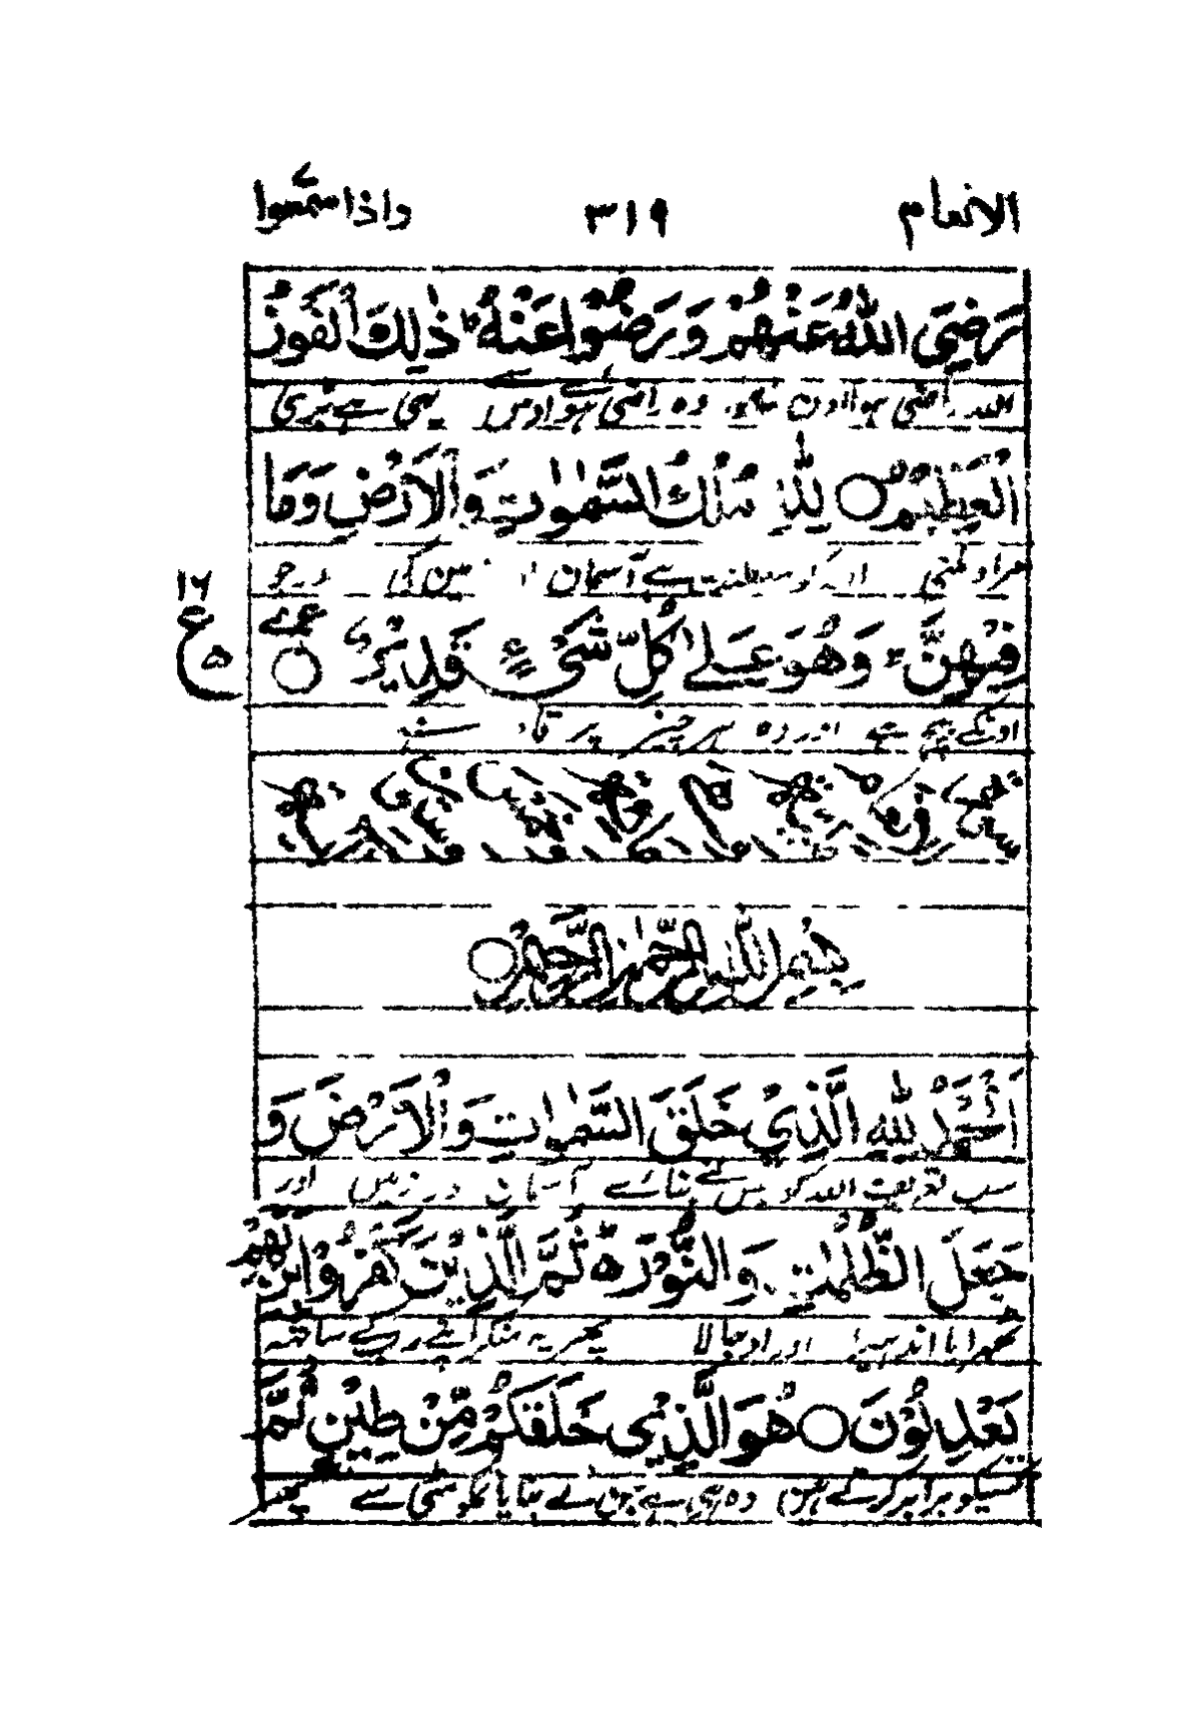 الانعام ۳۱۹ واذا سمعوا
رَضِیَ اللّٰهُ عَنْهُمْ وَرَضُوْا عَنْهُ ؕ ذٰلِكَ الْفَوْزُ
اللہ راضی ہوا اون سے وہ راضی ہوئے اوس سے یہی ہے بڑی
الْعَظِیْمُ ○ لِلّٰهِ مُلْكُ السَّمٰوٰتِ وَالْاَرْضِ وَمَا
مراد ملنی اللہ کو سلطنت ہے آسمان زمین کی جو
فِیْهِنَّ ؕ وَهُوَ عَلٰی كُلِّ شَیْءٍ قَدِیْرٌ ○
۱۶
ع
۵
اونکے بیچ ہے اور وہ ہر چیز پر قادر ہے
بِسْمِ اللّٰهِ الرَّحْمٰنِ الرَّحِیْمِ ○
اَلْحَمْدُ لِلّٰهِ الَّذِیْ خَلَقَ السَّمٰوٰتِ وَالْاَرْضَ وَ
سب تعریف اللہ کو جس نے بنائے آسمان و زمین اور
جَعَلَ الظُّلُمٰتِ وَالنُّوْرَ ؕ ثُمَّ الَّذِیْنَ كَفَرُوْا بِرَبِّهِمْ
ٹھہرایا اندھیرا اور اوجالا پھر یہ منکر اپنے رب کے ساتھ
یَعْدِلُوْنَ ○ هُوَ الَّذِیْ خَلَقَكُمْ مِّنْ طِیْنٍ ثُمَّ
کسیکو برابر کرتے ہیں وہ ہی ہے جن نے بنایا تمکو مٹی سے پھر